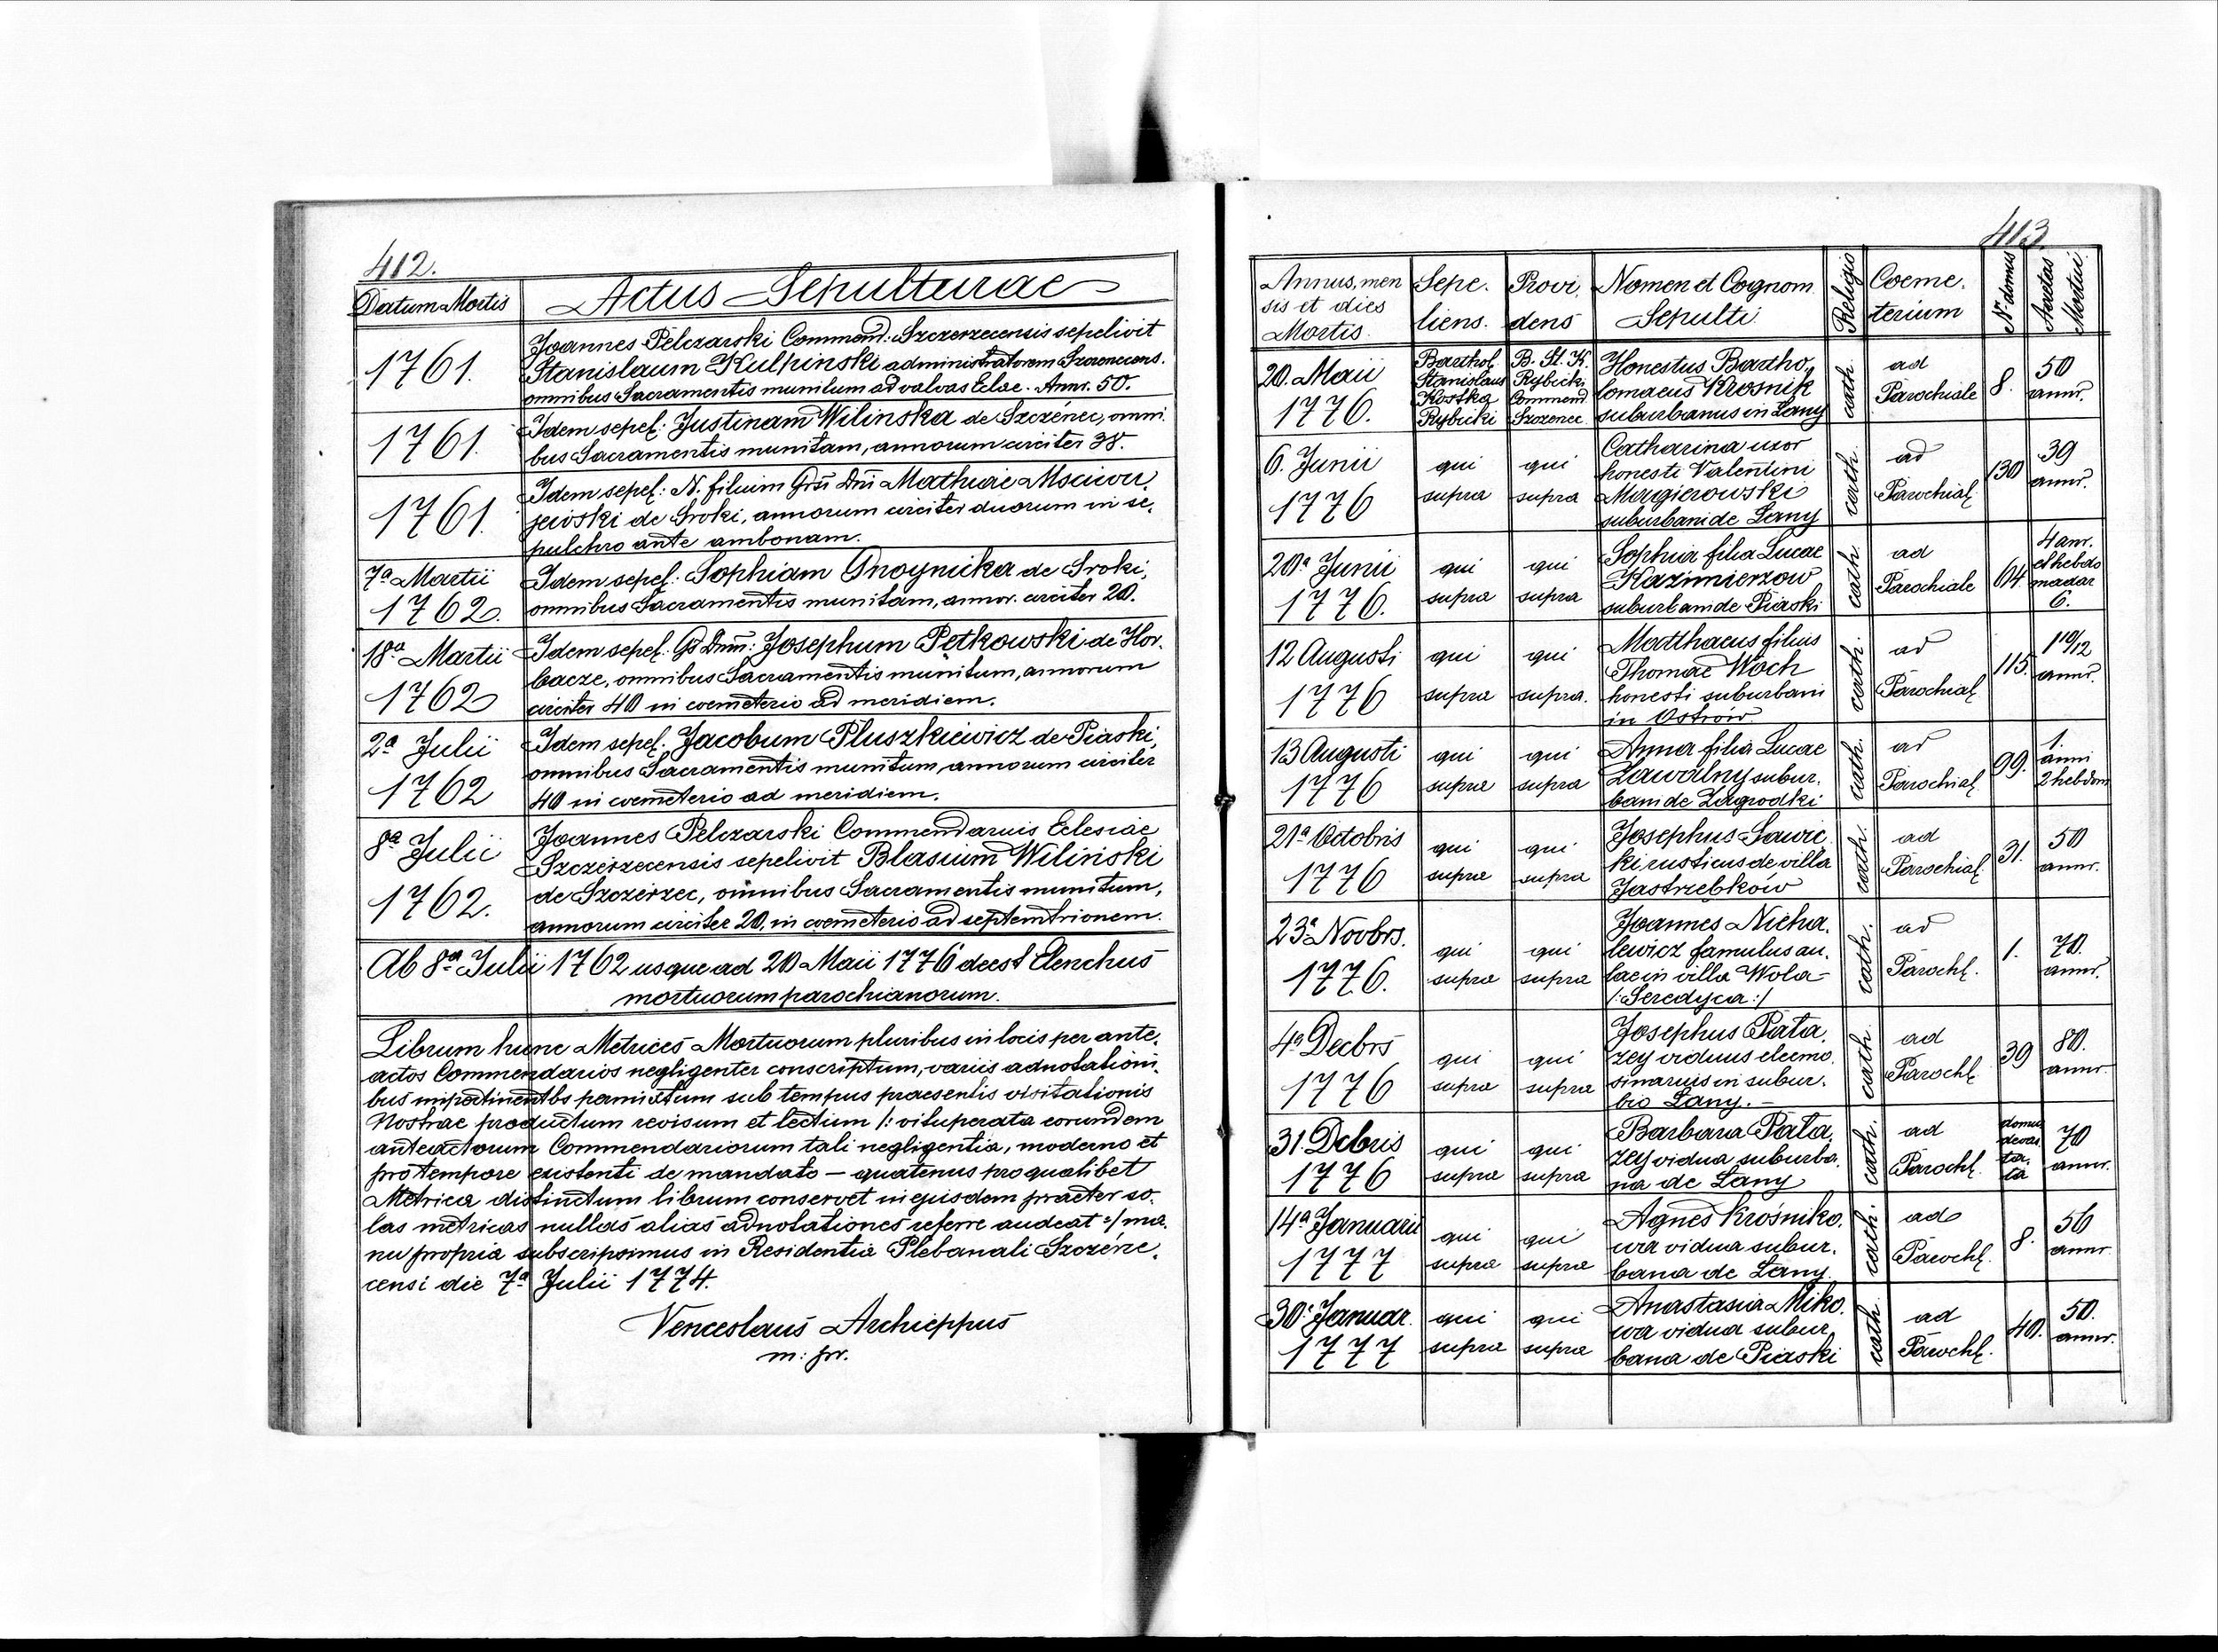 412.
Datum Mortis Actus Sepulturae
1761. Joannes Pelczarski Commend: Szczerzecensis sepelivit
Stanislaum Kulpinski administratorem Szczerzecens.
omnibus Sacramentis munitum ad valvas Eclae. Annr. 50.
1761. Idem sepel: Justinam Wilinska de Szczérzec, omni,
bus Sacramentis munitam, annorum circiter 38.
1761. Idem sepel: N. filium Grsi Dni Mathiae Msciwu,
jewski de Sroki, annorum circiter duorum in se,
pulchro ante ambonam.
7ª Martii Idem sepel: Sophiam Gnoynicka de Sroki,
1762. omnibus Sacramentis munitam, annor. circiter 20.
18ª Martii Idem sepel: Gs Dnm: Josephum Petkowski de Hor.
1762 bacze, omnibus Sacramentis munitum, annorum
circiter 40 in coemeterio ad meridiem.
2ª Julii Idem sepel. Jacobum Pluszkiewicz de Piaski,
1762 omnibus Sacramentis munitum, annorum circiter
40 in coemeterio ad meridiem.
8ª Julii Joannes Pelczarski Commendarius Eclesiae
Szczérzecensis sepelivit Blasium Wiliński
1762. de Szczérzec, omnibus Sacramentis munitum,
annorum circiter 20, in coemeterio ad septemtrionem.
Ab 8ª Julii 1762 usque ad 20 Maii 1776 deest Elenchus
mortuorum parochianorum.
Librum hunc Metrices Mortuorum pluribus in locis per ante,
actos Commendarios negligenter conscriptum, variis adnotationi,
bus impertinentbs permixtum sub tempus praesentis visitationis
Nostrae productum revisum et lectum /: vituperata eorundem
anteactorum Commendariorum tali negligentia, moderno et
pro tempore existenti de mandato – quatenus pro qualibet
Metrica distinctum librum conservet in ejusdem praeter so,
las metricas nullas alias adnotationes referre audeat :/ ma,
nu propria subscripsimus in Residentia Plebanali Szczérze,
censi die 7ª Julii 1774.
Venceslaus Archieppus
m: pr.
413.
Annus, men
sis et dies
Mortis.
Sepe.
liens.
Provi,
dens
Nomen et Cognom
Sepulti
Religio
Coeme.
terium
Nr. domus
Aetas
Mortui
20. Maii
1776.
Barthol.
Stanislaus
Kostka
Rybicki
B. St. K.
Rybicki
Commend
Szczerzec
Honestus Bartho,
lomaeus Krosnik
suburbanus in Lany
cath.
ad
Parochiale
8.
50
annr.
6. Junii
1776
qui
supra
qui
supra
Catharina uxor
honesti Valentini
Magierowski
suburbani de Lany
cath.
ad
Parochial.
130
39
annr.
20ª Junii
1776.
qui
supra
qui
supra
Sophia filia Lucae
Kazimierzow
suburbani de Piaski
cath.
ad
Parochiale
64.
4 anr.
et hebdo
madar
6.
12 Augusti
1776
qui
supra
qui
supra.
Matthaeus filius
Thomae Woch
honesti suburbani
in Ostrów.
cath.
ad
Parochial.
115.
1 10/12
annr.
13 Augusti
1776
qui
supra
qui
supra
Anna filia Lucae
Zawalny subur.
bani de Zagrodki
cath.
ad
Parochial.
99.
1.
anni
2 hebdom
21ª Octobris
1776
qui
supra
qui
supra
Josephus Sawic,
ki rusticus de villa
Jastrzebków
cath.
ad
Parochial.
31.
50
annr.
23ª Novbrs.
1776.
qui
supra
qui
supra
Joannes Micha.
lewicz famulus au,
lae in villa Wola
/: Seredyca :/
cath.
ad
Parochl.
1.
70.
annr.
4ª Decbrs
1776
qui
supra
qui
supra
Josephus Pata,
zey viduus eleemo,
sinarius in subur,
bio Lany. –
cath.
ad
Parochl.
39
80.
annr.
31. Decbris
1776
qui
supra
qui
supra
Barbara Pata,
zey vidua suburba,
na de Lany
cath.
ad
Parochl.
domus
devas.
ta.
ta
70
annr.
14ª Januarii
1777
qui
supra
qui
supra
Agnes Krośniko,
wa vidua subur,
bana de Lany
cath.
ad
Parochl.
8.
56
annr.
30ª Januar.
1777
qui
supra
qui
supra
Anastasia Miko.
wa vidua subur,
bana de Piaski
cath.
ad
Parochl.
40.
50.
annr.